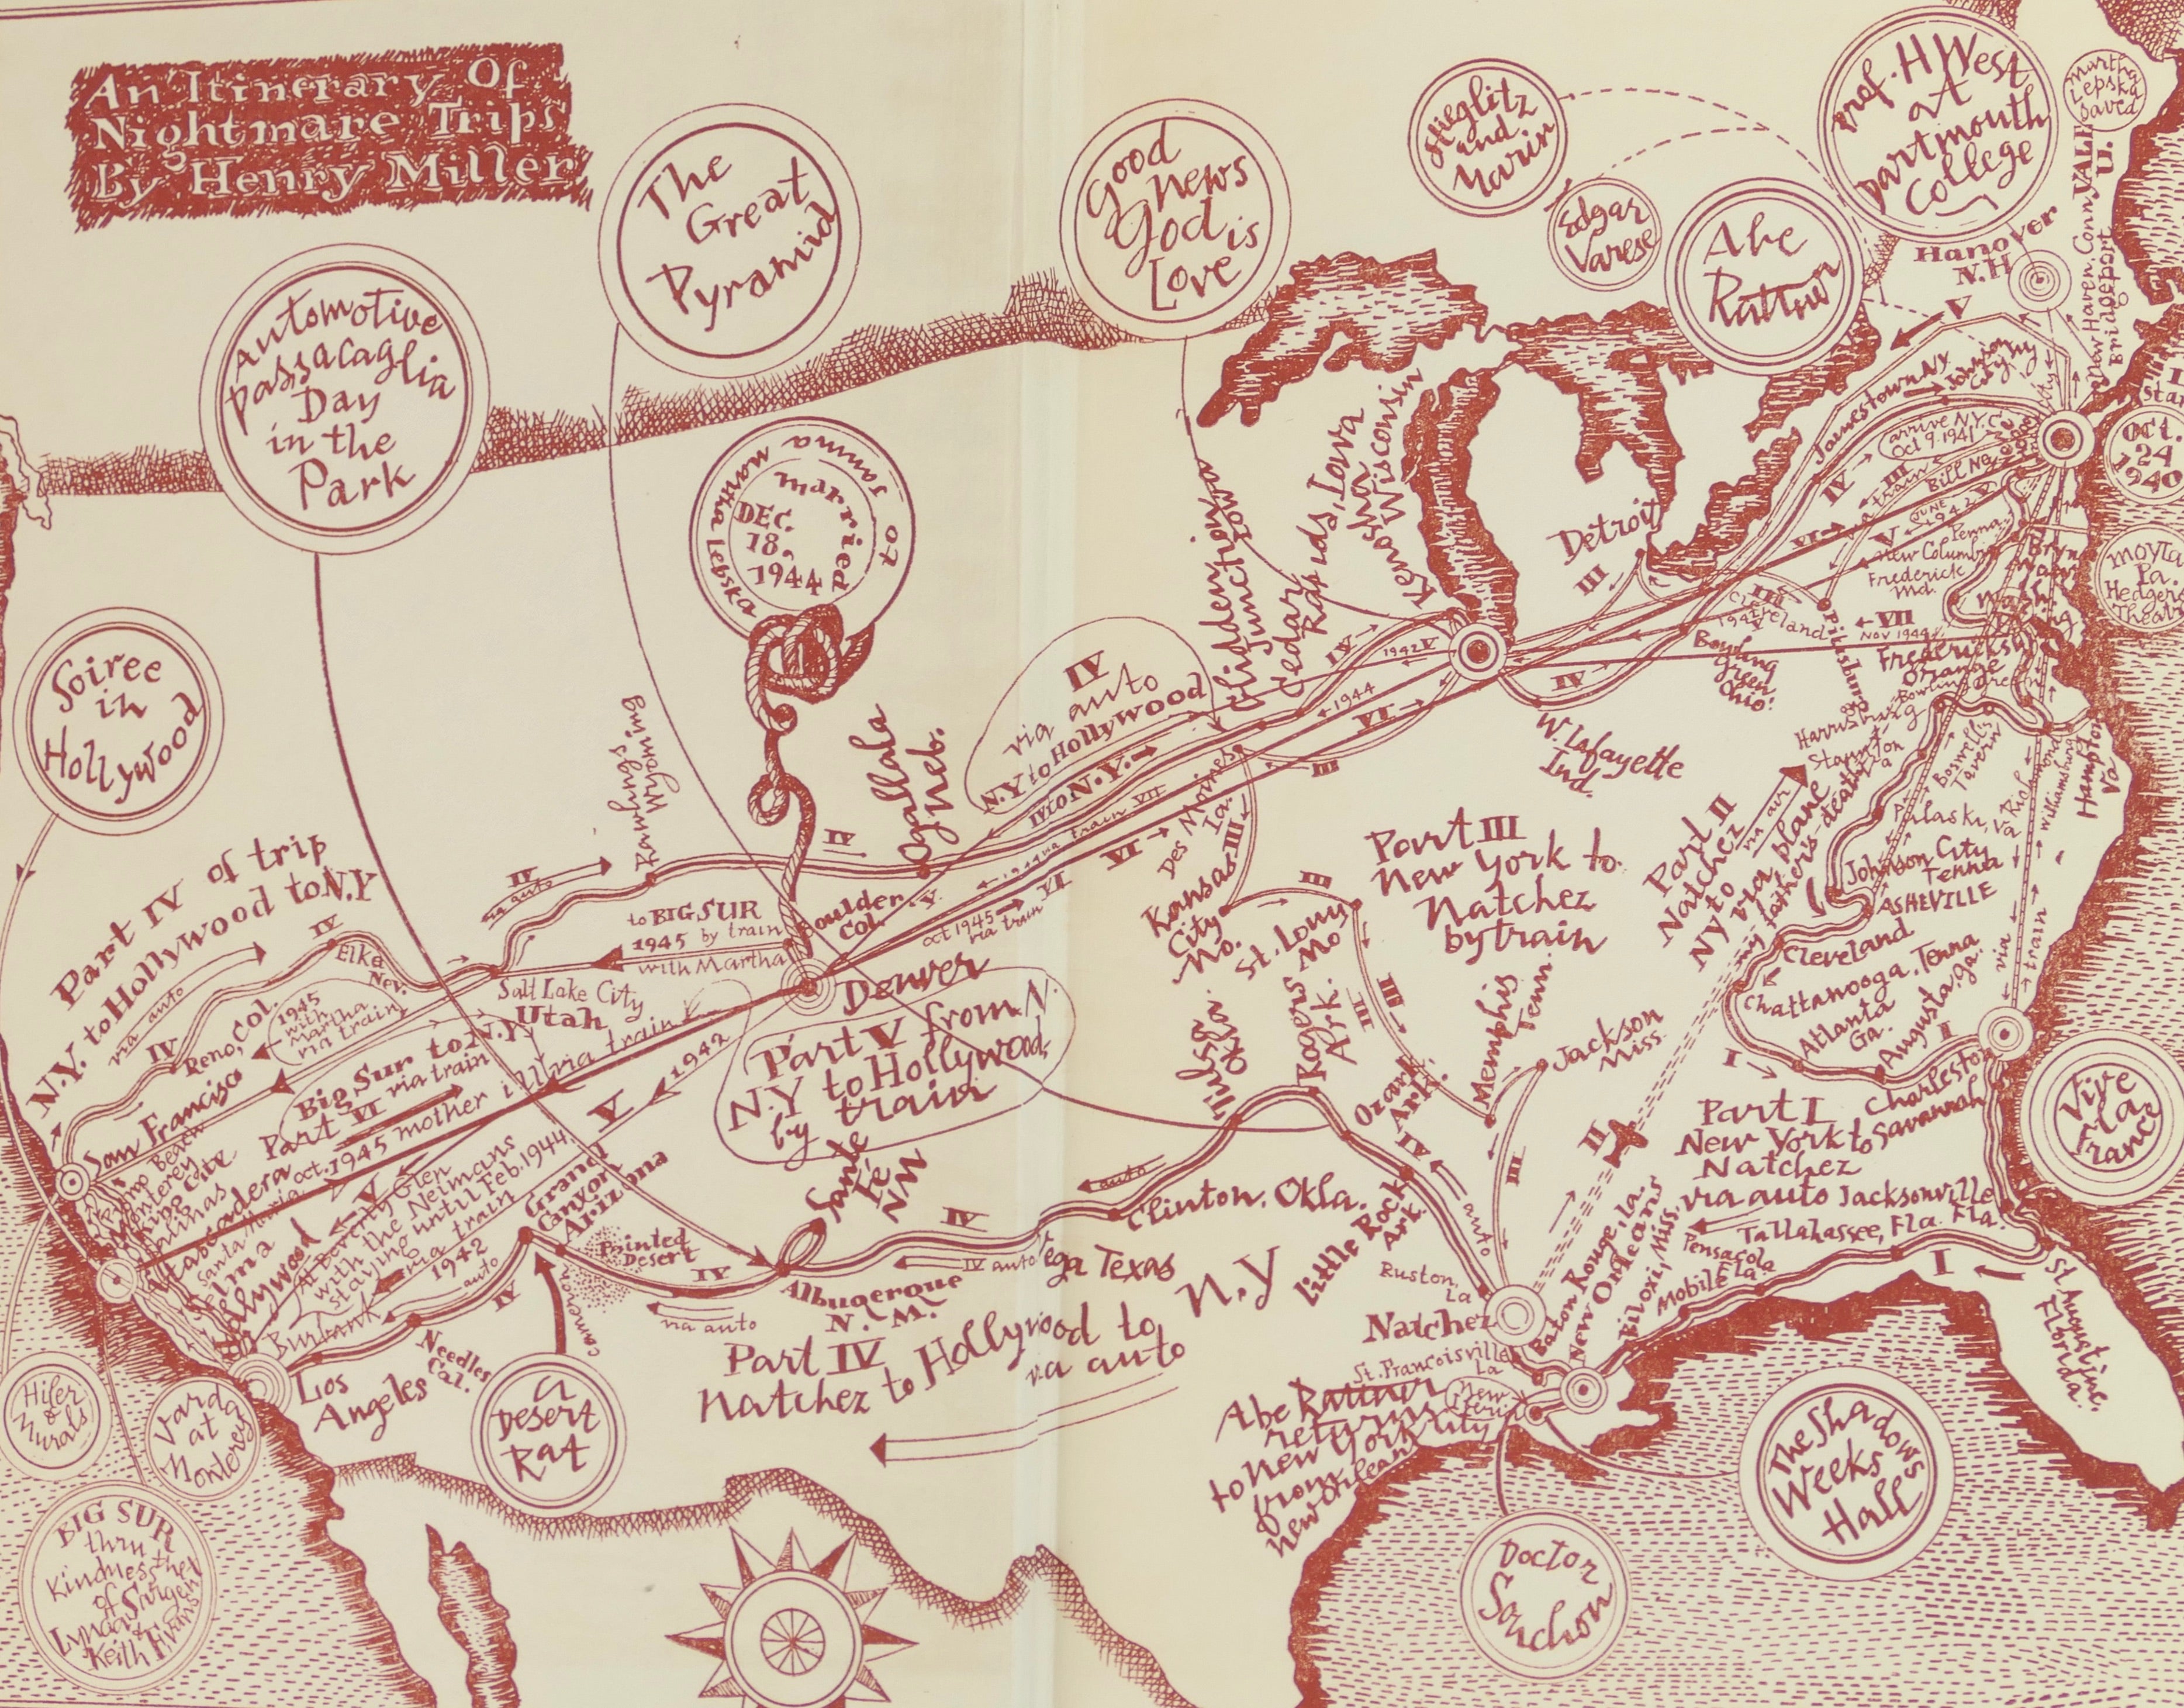 An Itinerary Of
Nightmare Trips
By Henry Miller
Automotive
passacaglia
Day
in the
Park
The
Great
Pyramid
Good
News
God is
Love
Stieglitz
and
Marin
Edgar
Varese
Abe
Rattner
Prof. H West
at
Dartmouth
College
Martha
Lepska
Saved
YALE U.
New Haven. Conn
Bridgeport
Hanover
N.H
V
Soiree
in
Hollywood
married
to
Janina
Martha Lepska
DEC.
18,
1944
OCT.
24
1940
Jamestown NY
Johnson
City NY
arrive N.Y.C.
Oct 9. 1941
IV
III
train
JUNE
1942
V
VI
Penna.
New Columbia
Frederick
Md.
Pa.
Hedgerow
Detroit
III
III
Cleveland
1944
Pittsburg
VII
NOV 1944
Bowling
Green
Ohio.
Fredericksburg
Orange
Bowling Green
Harrisburg
Staunton
Va
Boswells
Tavern
Richmond
Williamsburg
Hampton
Va
Pulaski, Va
Johnson City
Tenna
ASHEVILLE
Cleveland
Chattanooga, Tenna
Atlanta
Ga.
Augusta. ga.
II
I
Charleston
Savannah
via train
Glidden, Iowa
Junction
Iowa
Cedar
Rapids, Iowa
Kenosha
Wisconsin
IV
1942 V
1944
VI
III
IV
W. Lafayette
Ind.
IV
via auto
N.Y to Hollywood
IV to N.Y.
train VII
VI
Des Moines
Ia.
III
Kansas
City
Mo.
III
St. Louis
Mo
III
III
Rawlings
Wyoming
Ogallala
Neb.
IV
IV
via auto
to BIG SUR
1945 by train
with Martha
Boulder
Col.
V
oct 1945
via train
VI
Denver
Salt Lake City
Utah
Part IV of trip
N.Y. to Hollywood to N.Y
via auto
IV
Elko
Nev.
IV
Reno, Col.
1945
with
Martha
via train
San Francisco
Big Sur to N.Y
Part VI via train
oct. 1945 mother ill via train
V
1942
Part V from N.
N.Y to Hollywood,
by train
Part III
New York to
Natchez
by train
Part II
Natchez
to
NY via plane
via air
my father's death
II
Tulsa.
Okla
Rogers
Ark.
Ozark
Ark.
Memphis
Tenn.
Jackson
Miss.
III
IV
auto
Monterey
King City
Salinas
Atascadero
Santa Maria
Pismo
Hollywood
V
At Beverly Glen
with the Neimans
staying until Feb. 1944.
via train
1942
auto
IV
Burbank
Grand
Canyon
Arizona
Painted
Desert
Cameron
IV
via auto
Santa
Fé
NM
Albuquerque
N. M.
IV
IV auto
auto
Clinton. Okla.
Vega Texas
Little Rock
Ark.
Ruston,
La
Natchez
St. Francoisville
La
Baton Rouge, La.
New Orleans
Biloxi, Miss.
Mobile
Pensacola
Fla.
Part I
New York to
Natchez
via auto
Jacksonville
Fla.
Tallahassee, Fla.
I
St Augustine,
Florida.
Vive
la
France
Part IV
Natchez to Hollywood to N.Y
via auto
Abe Rattner
returns
to New York City
from
New Orleans
New
Iberia
Los
Angeles
Needles
Cal.
A
Desert
Rat
Hiler
&
Murals
Varda
at
Monterey
BIG SUR
thru the
kindness
of Sargent
Lynda &
Keith Evans
The Shadows
Weeks
Hall
Doctor
Souchon